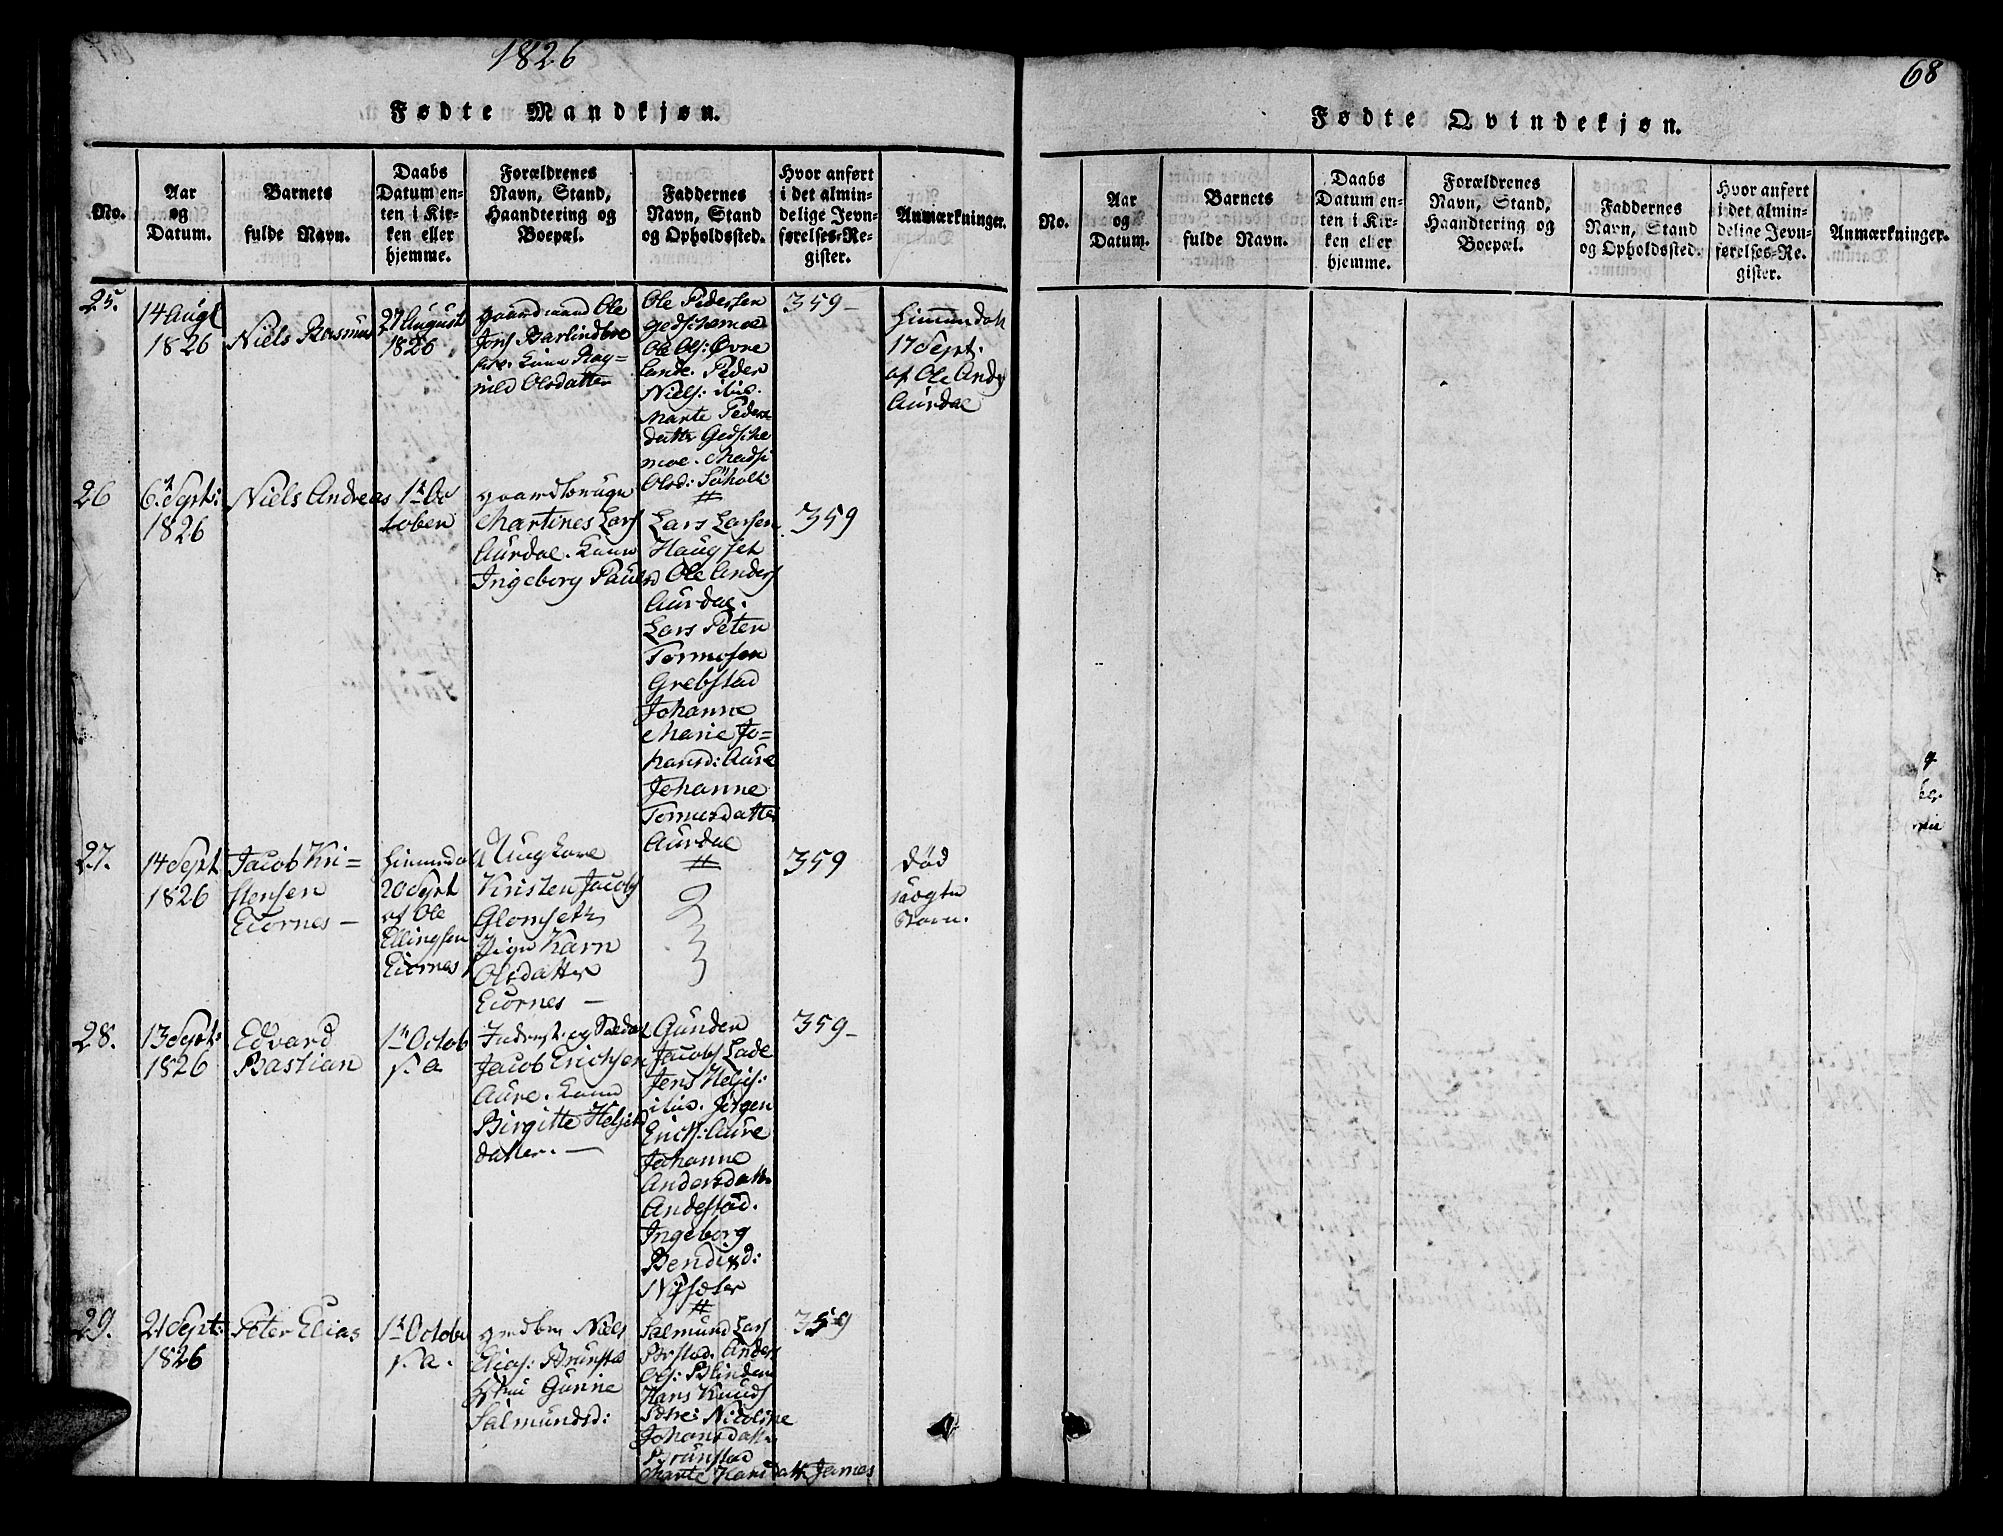 1826
68
Fødte Mandkjøn.
No.
Aar
og
Datum.
Barnets
fulde Navn.
Daabs
Datum en-
ten i Kir-
ken eller
hjemme.
Forældrenes
Navn, Stand,
Haandtering og
Boepæl.
Faddernes
Navn, Stand
og Opholdssted.
Hvor anført
i det almin-
delige Jevn-
førelses-Re-
gister.
Anmærkninger.
25.
14 Augt
1826
Niels Rasmus
27 August
1826
gaardmand Ole
Jons Barlindboe
Kone Ragn-
nild Olsdatter
Ole Pedersen
Gedschemoe
Ole Ols: Øvre
Lande. Peder
Niels: ibid.
Marte Peders
datter Gedsche
moe. Madsi
Olsd: Søholt:
359-
Hiemmedøbt
17 Sept:
af Ole Anders
Aurdal
26
6 Sept:
1826
Niels Andreas
1 Oc
tober
gaardbruger
Martines Lars
Aurdal. Kone
Ingeborg Pauls
Lars Larsen
Haugset
Ole Anders
Aurdal.
Lars Peter
Tormosen
Grebstad
Johanne
Marie Jo-
hansd: Aure
Johanne
Tormosdatter
Aurdal
359
27.
14 Sept
1826
Jacob Kri-
stensen
Eidrnes -
Hiemmedøbt
20 Sept
af Ole
Ellingsen
Eidrnes
Ungkarl
Kristen Jacobs
Glomset
Pige Karn
Olsdatter
Eidrnes -
359
død
uægte
Barn.
28.
13 Sept:
1826
Edvard
Bastian
1 Octob
s. a
Jacob Ericksen
Aure. Kone
Birgitte Helsets
datter. -
Gunder
Jacobs Lade
Jens Helsis:
ibid. Jørgen
Erichs: Aure
Johanne
Andersdatt.
Andestad.
Ingeborg
Bendixd:
Nysæter
359-
29.
21 Sept:
1826
Peter Elias
1 Octobr
s. a.
grdbr Niels
Elias: Brunstad
Hustru Gunne
Salmundsd:
Salmund Lars
Brstad. Anders
Ols: Blinden
Hans Knuds
Sætre: Nicoline
Johansdatt.
Brunstad
Marte Hansdatt. James
359
Fødte Qvindekjøn.
No.
Aar
og
Datum.
Barnets
fulde Navn.
Daabs
Datum en-
ten i Kir-
ken eller
hjemme.
Forældrenes
Navn, Stand,
Haandtering og
Boepæl.
Faddernes
Navn, Stand
og Opholdssted.
Hvor anført
i det almin-
delige Jevn-
førelses-Re-
gister.
Anmærkninger.